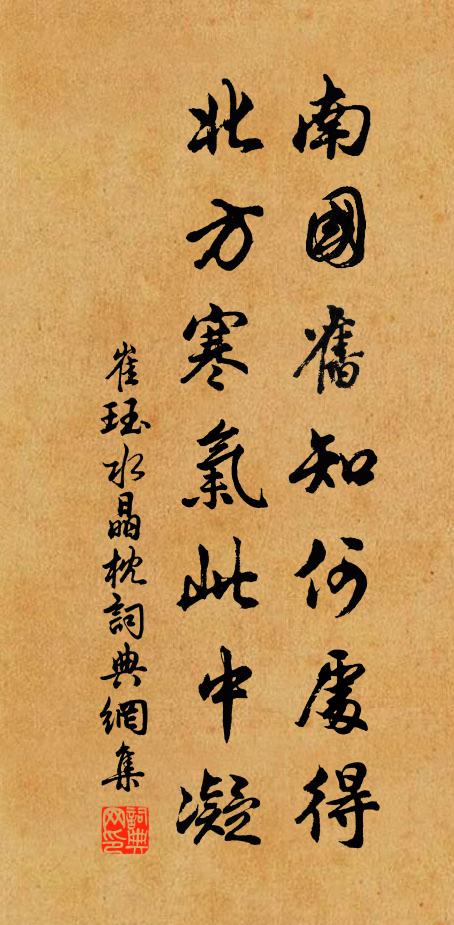 南國舊知何處得
北方寒氣此中凝
崔珏水晶枕詞典網集
詞典网印